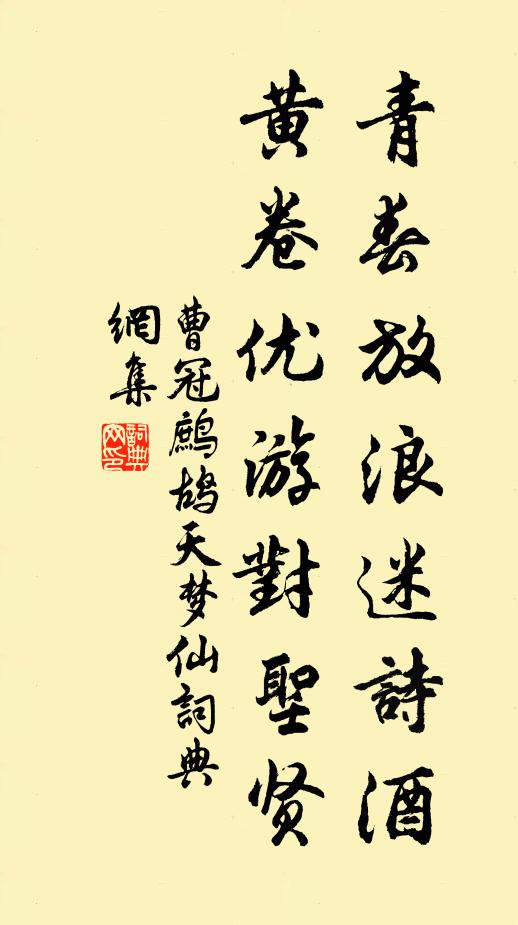 青春放浪迷詩酒
黄卷优游對聖贤
曹冠鷓鸪天梦仙詞典
網集
詞典
网印